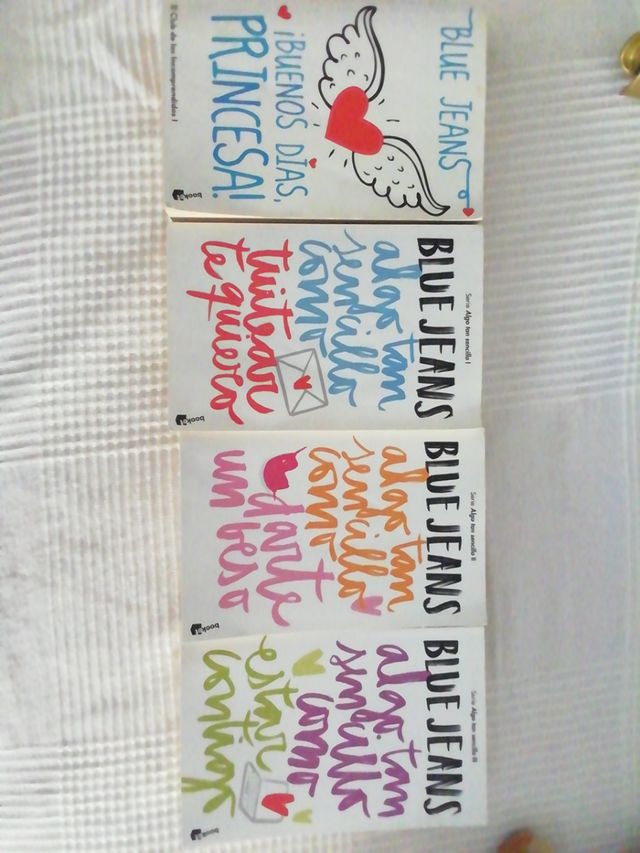 BLUE JEANS
¡BUENOS DÍAS,
PRINCESA!
El Club de los Incomprendidos I
booket
Serie Algo tan sencillo I
BLUE JEANS
algo tan
sencillo
como
tuitear
te quiero
booket
Serie Algo tan sencillo II
BLUE JEANS
algo tan
sencillo
como
darte
un beso
booket
Serie Algo tan sencillo III
BLUE JEANS
algo tan
sencillo
como
estar
contigo
booket